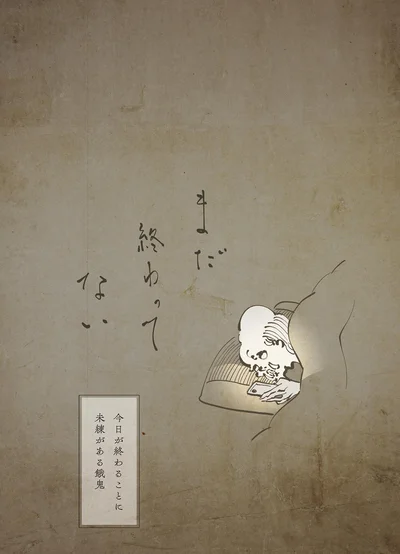 まだ
終わって
ない
今日が終わることに
未練がある餓鬼